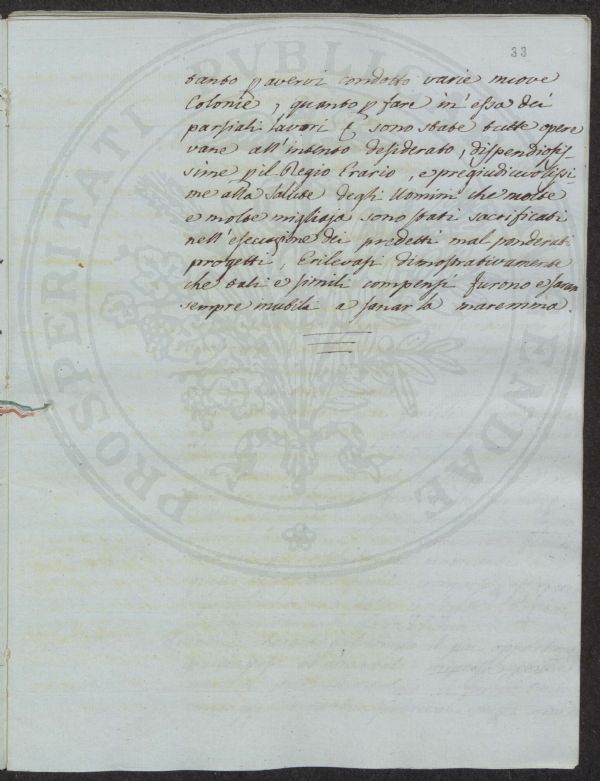 33
tanto p avervi condotto varie nuove
Colonie, quanto p fare in essa dei
parziali lavori sono state tutte opere
vane all'intento desiderato, dispendiosis-
sime p il Regio Erario, e pregiudicevolissi-
me alla salute degli Uomini che molte
e molte migliaja sono stati sacrificati
nell'esecuzione dei predetti mal ponderati
progetti, E rilevasi dimostrativamente
che tali e simili compensi furono e saran
sempre inutili a sanar la maremma.
PROSPERITATI PUBLICAE AUGENDAE